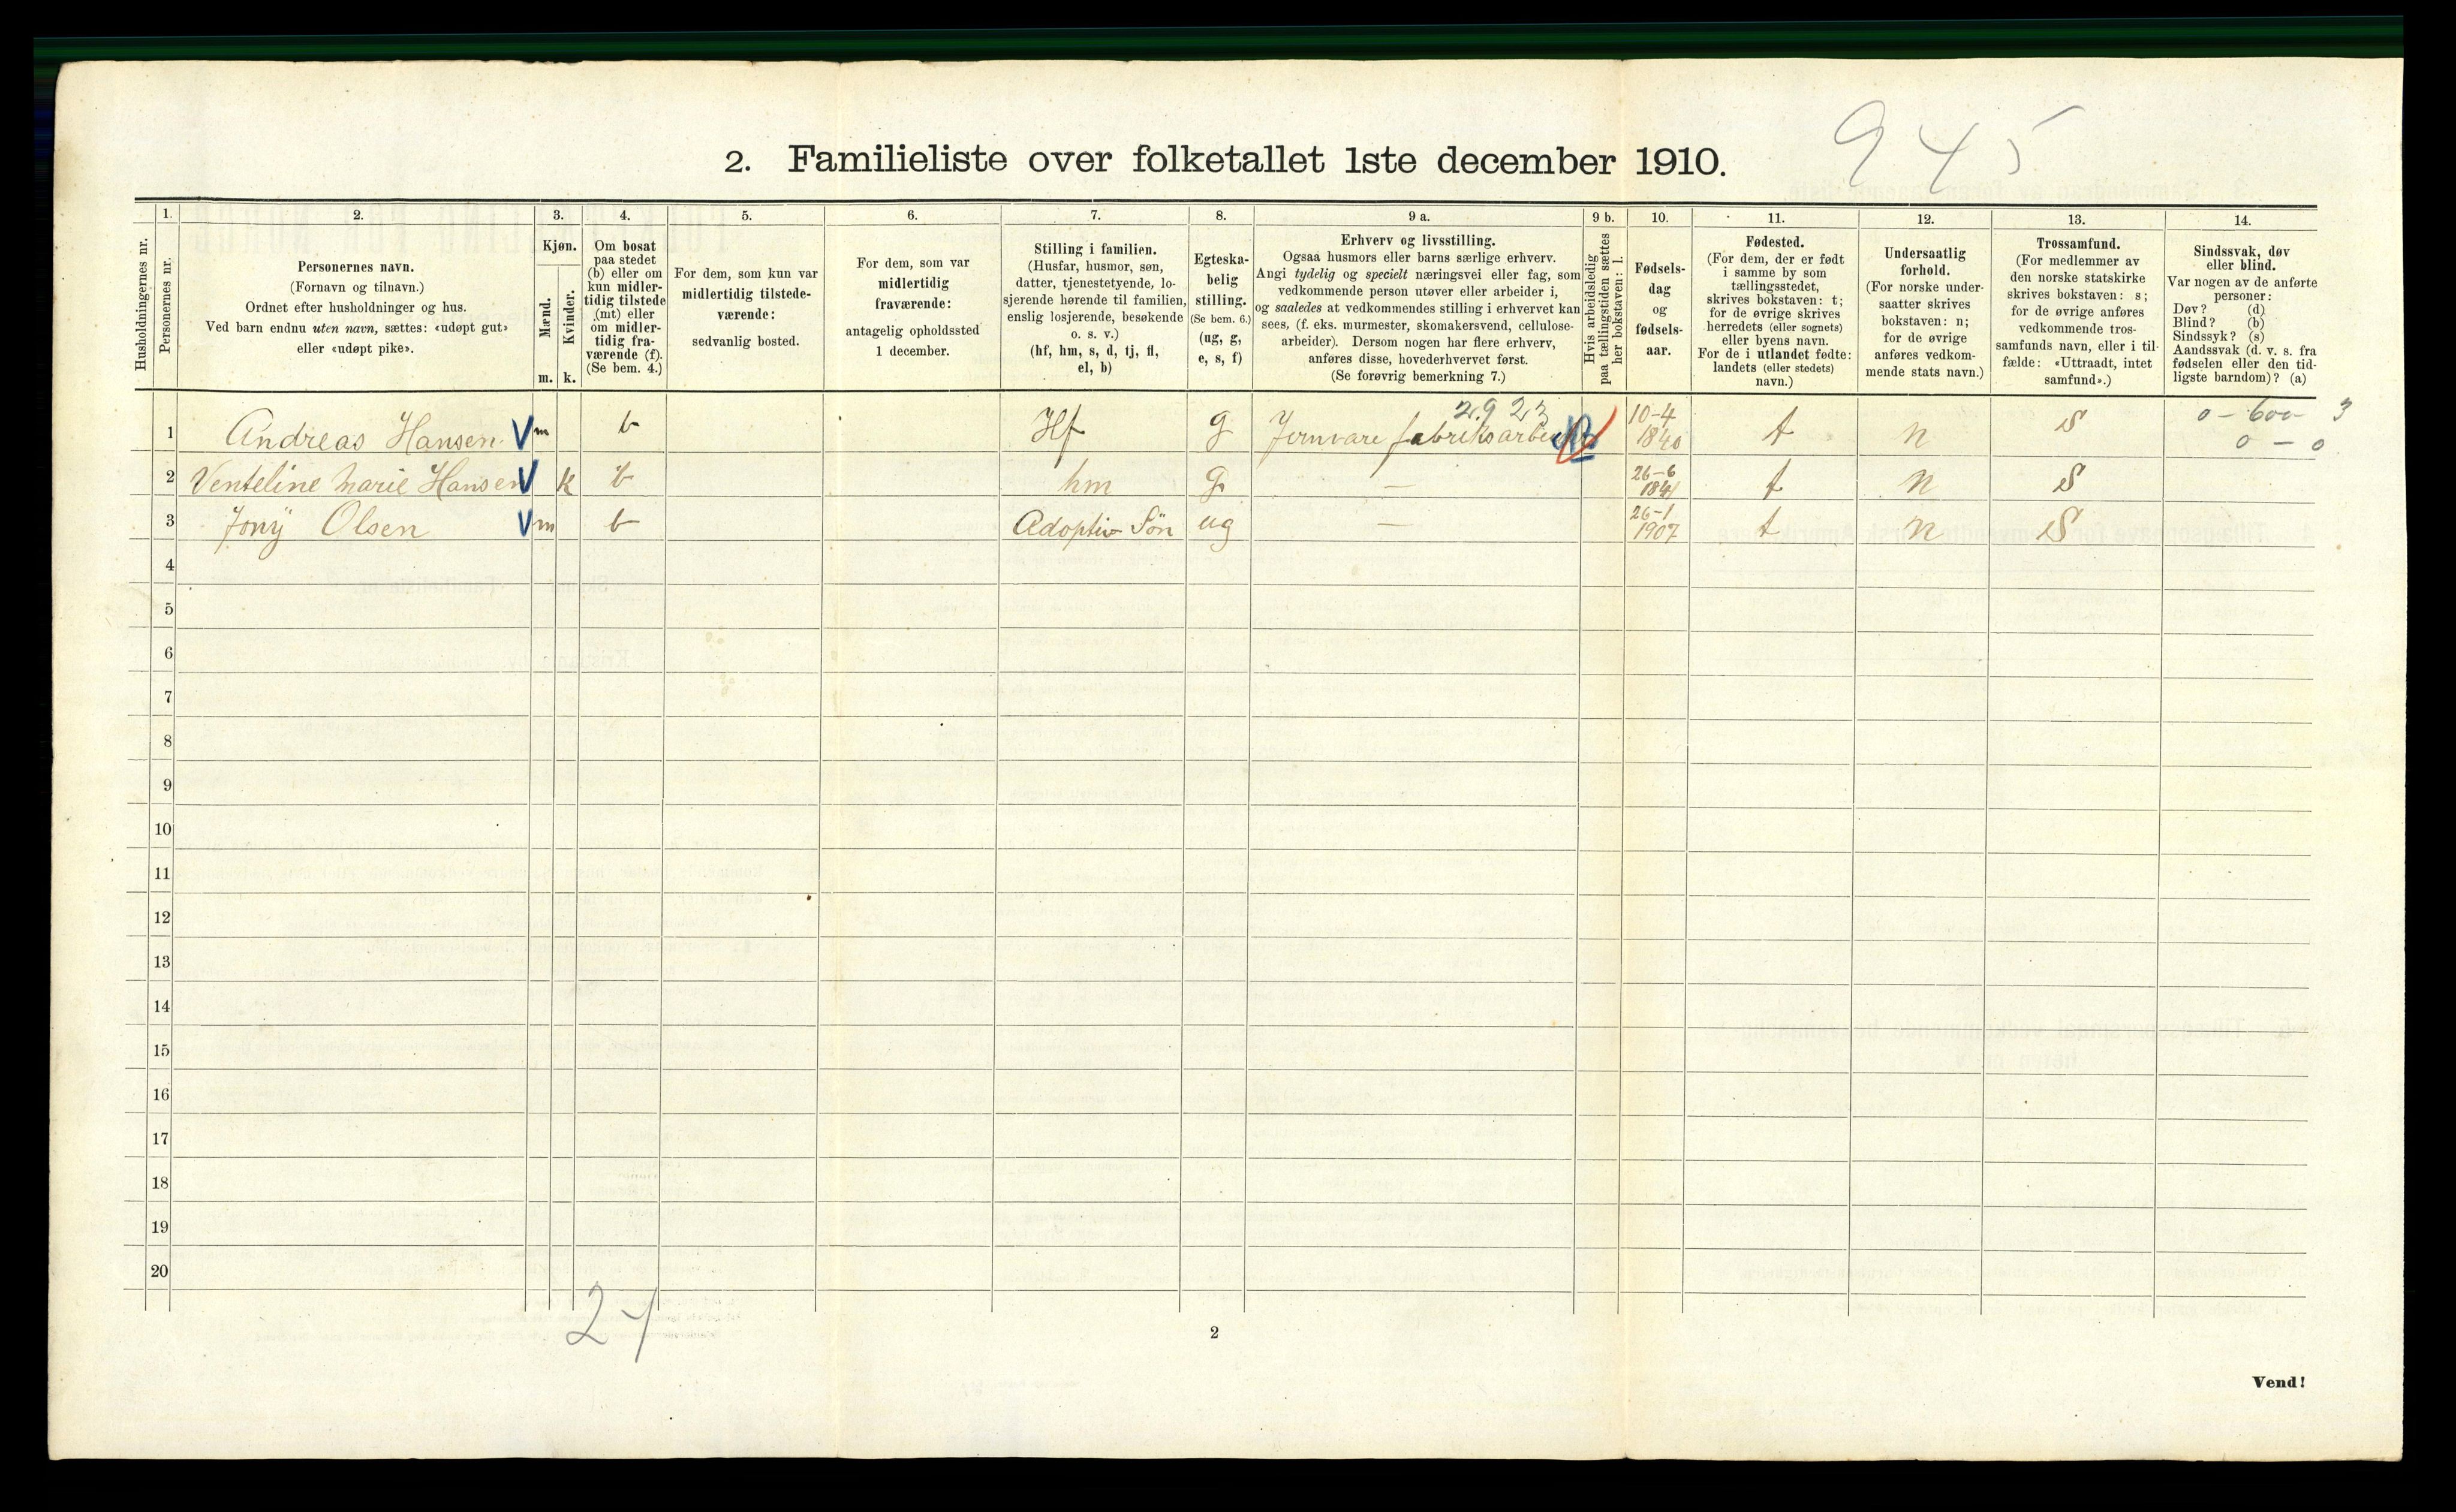 945
2. Familieliste over folketallet 1ste december 1910.
1. 2. 3. 4. 5. 6. 7. 8. 9 a. 9 b. 10. 11. 12. 13. 14.
Husholdningernes nr.
Personernes nr.
Personernes navn.
(Fornavn og tilnavn.)
Ordnet efter husholdninger og hus.
Ved barn endnu uten navn, sættes: «udøpt gut»
eller «udøpt pike».
Kjøn.
Mænd.
Kvinder.
m. k.
Om bosat
paa stedet
(b) eller om
kun midler-
tidig tilstede
(mt) eller
om midler-
tidig fra-
værende (f).
(Se bem. 4.)
For dem, som kun var
midlertidig tilstede-
værende:
sedvanlig bosted.
For dem, som var
midlertidig
fraværende:
antagelig opholdssted
1 december.
Stilling i familien.
(Husfar, husmor, søn,
datter, tjenestetyende, lo-
sjerende hørende til familien,
enslig losjerende, besøkende
o. s. v.)
(hf, hm, s, d, tj, fl,
el, b)
Egteska-
belig
stilling.
(Se bem. 6.)
(ug, g,
e, s, f)
Erhverv og livsstilling.
Ogsaa husmors eller barns særlige erhverv.
Angi tydelig og specielt næringsvei eller fag, som
vedkommende person utøver eller arbeider i,
og saaledes at vedkommendes stilling i erhvervet kan
sees, (f. eks. murmester, skomakersvend, cellulose-
arbeider). Dersom nogen har flere erhverv,
anføres disse, hovederhvervet først.
(Se forøvrig bemerkning 7.)
Hvis arbeidsledig
paa tællingstiden sættes
her bokstaven: l.
Fødsels-
dag
og
fødsels-
aar.
Fødested.
(For dem, der er født
i samme by som
tællingsstedet,
skrives bokstaven: t;
for de øvrige skrives
herredets (eller sognets)
eller byens navn.
For de i utlandet fødte:
landets (eller stedets)
navn.)
Undersaatlig
forhold.
(For norske under-
saatter skrives
bokstaven: n;
for de øvrige
anføres vedkom-
mende stats navn.)
Trossamfund.
(For medlemmer av
den norske statskirke
skrives bokstaven: s;
for de øvrige anføres
vedkommende tros-
samfunds navn, eller i til-
fælde: «Uttraadt, intet
samfund».)
Sindssvak, døv
eller blind.
Var nogen av de anførte
personer:
Døv? (d)
Blind? (b)
Sindssyk? (s)
Aandssvak (d. v. s. fra
fødselen eller den tid-
ligste barndom)? (a)
2923 10-4 0 - 600 - 3
1 Andreas Hansen V m b Hf g Jernvare fabriksarbeider 1840 t n S 0 - 0
2 Venteline Marie Hansen V k b hm g — 26-6 1841 t n S
3 Jony Olsen V m b Adoptiv Søn ug — 26-1 1907 t n S
4
5
6
7
8
9
10
11
12
13
14
15
16
17
18
19
20
2
Vend!